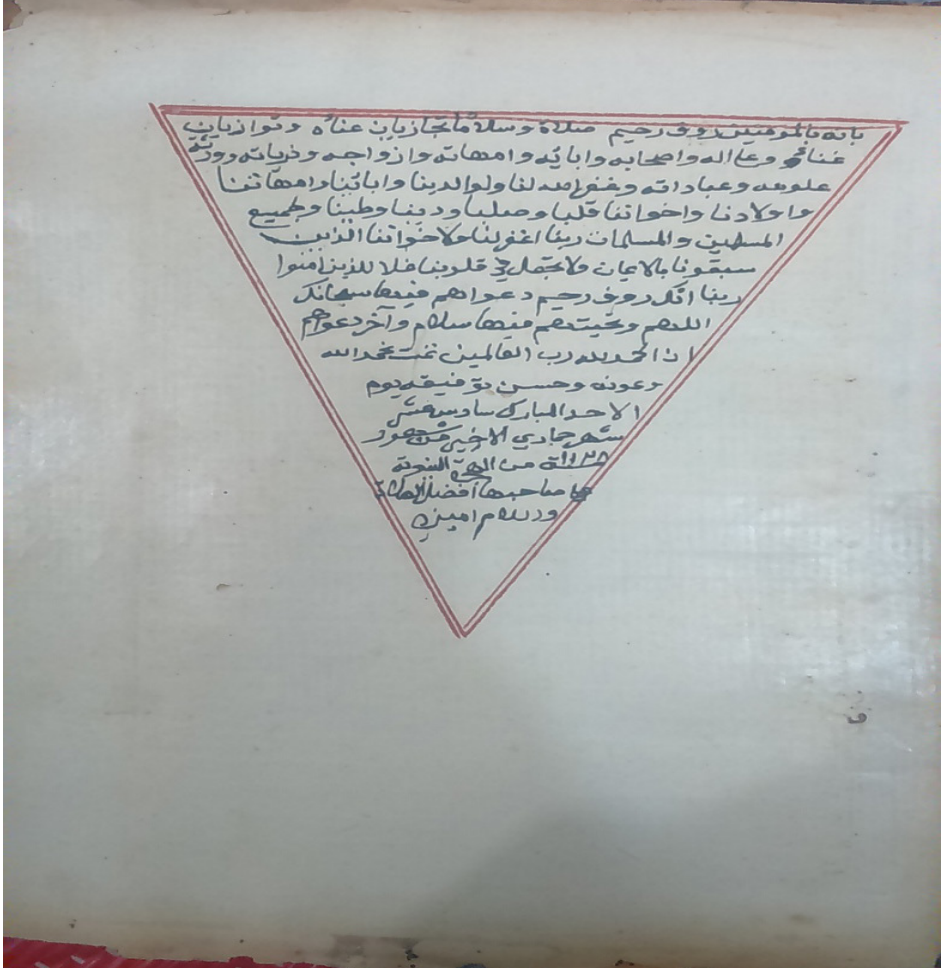 بانه بالمومنين روف رحيم صلاة وسلاما تجازيان عناه وتوازيان
غناه وعلى اله واصحابه وابائه وامهاته وازواجه وذرياته وورثة
علومه وعباداته وغفر الله لنا ولوالدينا وابائنا وامهاتنا
واولادنا واخواتنا قلبا وصلبا ودينا وطينا ولجميع
المسلمين والمسلمات ربنا اغفر لنا ولاخواننا الذين
سبقونا بالايمان ولا تجعل في قلوبنا غلا للذين امنوا
ربنا انك روف رحيم دعواهم فيها سبحانك
اللهم وتحيتهم فيها سلام وآخر دعواهم
ان الحمد لله رب العالمين تمت بحمد الله
وعونه وحسن توفيقه يوم
الاحد المبارك سادس عشر
شهر جمادي الاخير من شهور
من الهجرة النبوية
صاحبها افضل الصلاة
والسلام امين